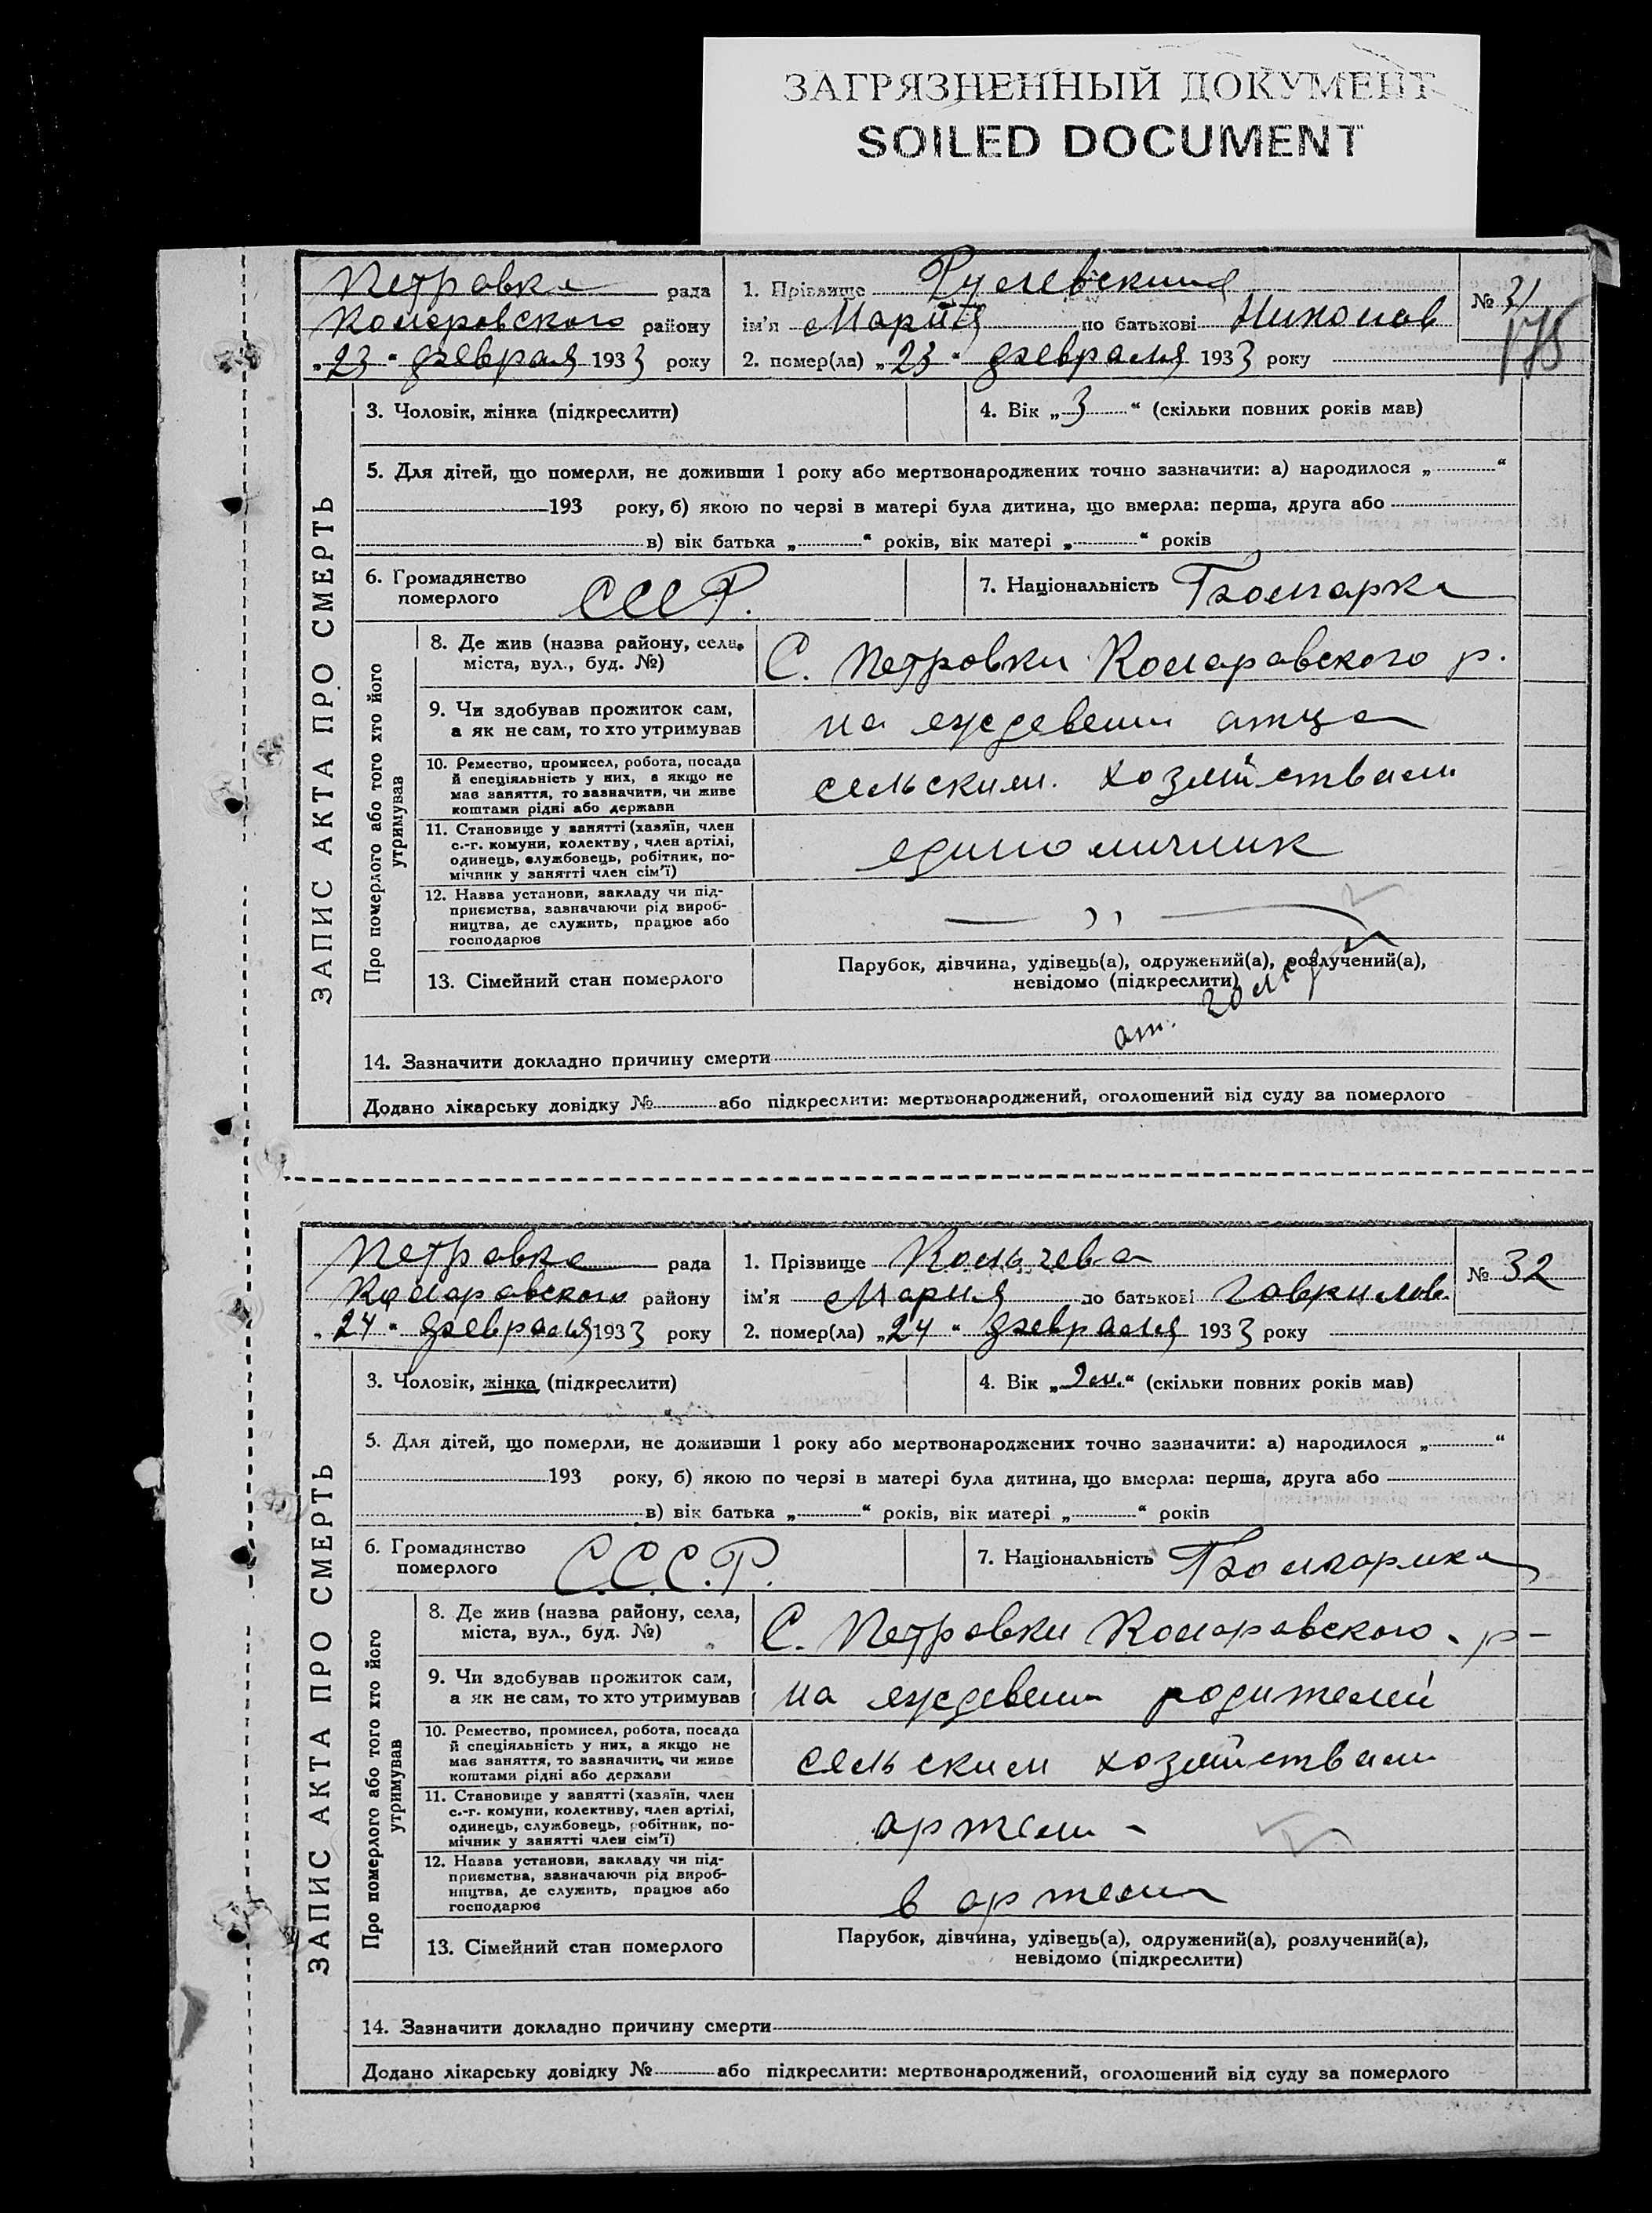 ЗАГРЯЗНЕННЫЙ ДОКУМЕНТ
SOILED DOCUMENT
Петровка рада
района району
"23" февраля 1933 року
1. Прізвище
ім'я Мария по батькові
2. помер(ла) "23" февраля 1933 року
№ 31
175
3. Чоловік, жінка (підкреслити)
4. Вік „3“ (скільки повних років мав)
5. Для дітей, що померли, не доживши 1 року або мертвонароджених точно зазначити: а) народилося „ “
193 року, б) якою по черзі в матері була дитина, що вмерла: перша, друга або
в) вік батька „ “ років, вік матері „ “ років
6. Громадянство
померлого
СССР.
7. Національність Болгарка
ЗАПИС АКТА ПРО СМЕРТЬ
Про померлого або того хто його
утримував
8. Де жив (назва району, села,
міста, вул., буд. №)
С. Петровки Коларовского р.
9. Чи здобував прожиток сам,
а як не сам, то хто утримував
на отца
10. Ремество, промисел, робота, посада
й спеціяльність у них, а якщо не
має заняття, то зазначити, чи живе
коштами рідні або держави
сельским. хозяйством
11. Становище у занятті (хазяїн, член
с.-г. комуни, колектву, член артілі,
одинець, службовець, робітник, по-
мічник у занятті член сім'ї)
единоличник
12. Назва установи, закладу чи під-
приємства, зазначаючи рід вироб-
ництва, де служить, працює або
господарює
— ,, —
13. Сімейний стан померлого
Парубок, дівчина, удівець(а), одружений(а), розлучений(а),
невідомо (підкреслити)
14. Зазначити докладно причину смерти
от
Додано лікарську довідку № або підкреслити: мертвонароджений, оголошений від суду за померлого
Петровка рада
Коларовского району
"24" февраля 1933 року
1. Прізвище
ім'я Мария по батькові Гаврилов.
2. помер(ла) "24" февраля 1933 року
№ 32
3. Чоловік, жінка (підкреслити)
4. Вік „ “ (скільки повних років мав)
5. Для дітей, що померли, не доживши 1 року або мертвонароджених точно зазначити: а) народилося „ “
193 року, б) якою по черзі в матері була дитина, що вмерла: перша, друга або
в) вік батька „ “ років, вік матері „ “ років
6. Громадянство
померлого
С.С.С.Р.
7. Національність
ЗАПИС АКТА ПРО СМЕРТЬ
Про померлого або того хто його
утримував
8. Де жив (назва району, села,
міста, вул., буд. №)
С. Петровки Коларовского р-
9. Чи здобував прожиток сам,
а як не сам, то хто утримував
на родителей
10. Ремество, промисел, робота, посада
й спеціяльність у них, а якщо не
має заняття, то зазначити, чи живе
коштами рідні або держави
сельским хозяйством
11. Становище у занятті (хазяїн, член
с.-г. комуни, колективу, член артілі,
одинець, службовець, робітник, по-
мічник у занятті член сім'ї)
артели -
12. Назва установи, закладу чи під-
приємства, зазначаючи рід вироб-
ництва, де служить, працює або
господарює
в артели
13. Сімейний стан померлого
Парубок, дівчина, удівець(а), одружений(а), розлучений(а),
невідомо (підкреслити)
14. Зазначити докладно причину смерти
Додано лікарську довідку № або підкреслити: мертвонароджений, оголошений від суду за померлого